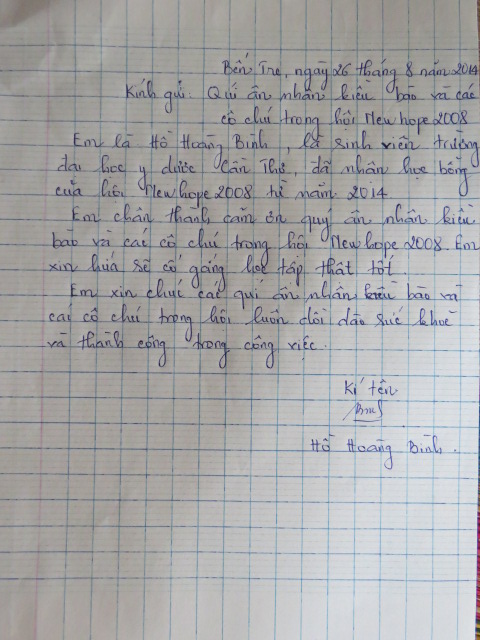 Bến Tre, ngày 26 tháng 8 năm 2014
Kính gửi: Quí ân nhân kiều bào và các
cô chú trong hội New hope 2008
Em là Hồ Hoàng Bình, là sinh viên trường
đại học y dược Cần Thơ, đã nhận học bổng
của hội New hope 2008 từ năm 2014
Em chân thành cảm ơn quý ân nhân kiều
bào và các cô chú trong hội New hope 2008. Em
xin hứa sẽ cố gắng học tập thật tốt.
Em xin chúc các quí ân nhân kiều bào và
các cô chú trong hội luôn dồi dào sức khoẻ
và thành công trong công việc.
Kí tên
Hồ Hoàng Bình.